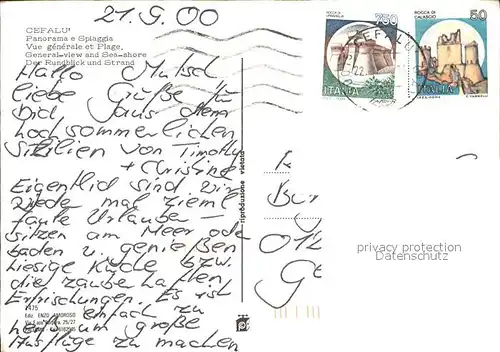 21.9.00
CEFALU'
Panorama e Spiaggia
Vue générale et Plage,
General-view and Sea-shore
Der Rundblick und Strand
Hallo Mutsch
liebe Grüße für
Dich aus dem
hochsommerlichen
Sizilien von Timothy
+ Christine
Eigentlich sind wir
wieder mal zieml.
faule Urlauber –
sitzen am Meer oder
baden u. genießen
hiesige Küche bzw.
die zauberhaften
Erfrischungen. Es ist
einfach zu
heiß um große
Ausflüge zu machen
7475
Ediz. ENZO AMOROSO
riproduzione vietata
750
ITALIA
ROCCA DI CALASCIO
50
ITALIA
CEFALU
012
privacy protection
Datenschutz